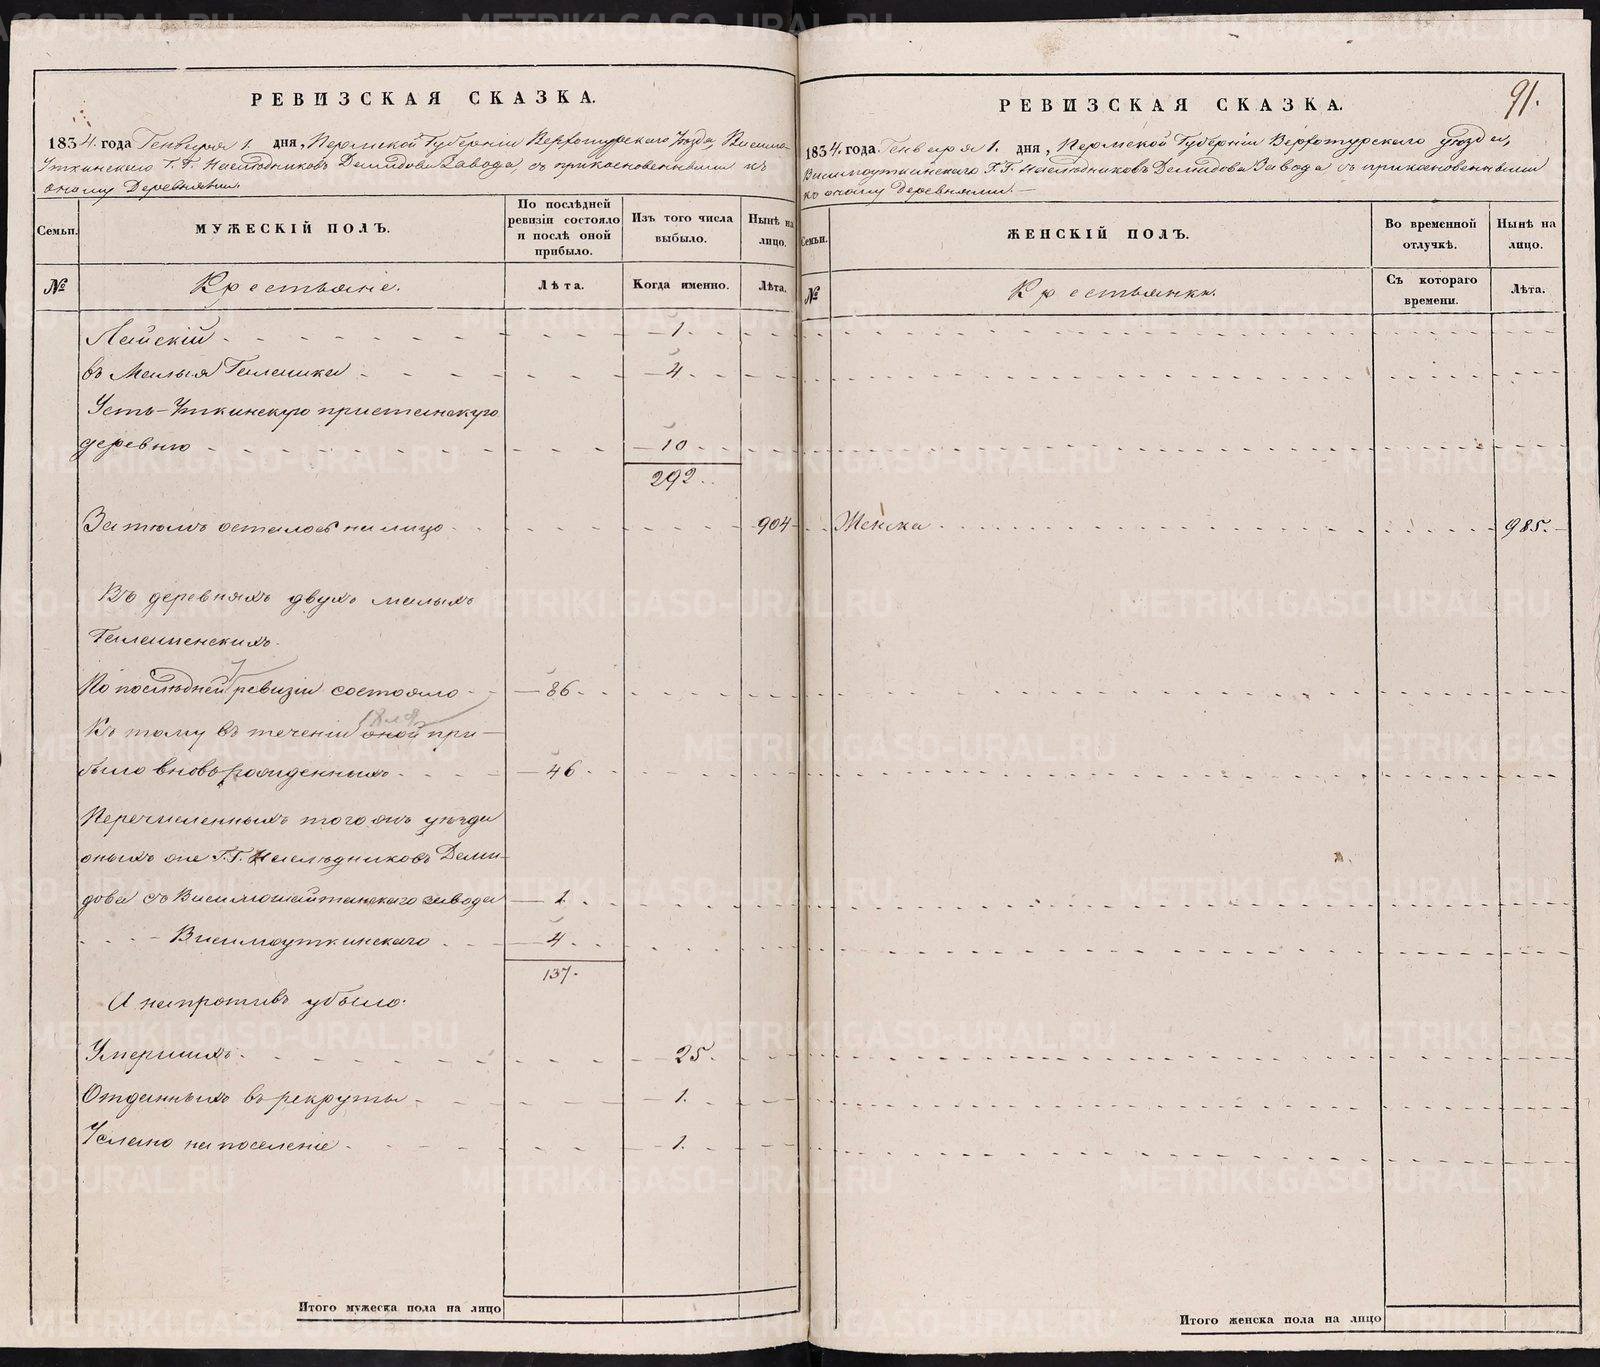 РЕВИЗСКАЯ СКАЗКА.
1834. года Генваря 1. дня, Пермской Губерніи Верхотурскаго Уѣзда, Висимо-
Уткинскаго Г. Г. Наслѣдниковъ Демидова Завода, съ прикосновенными къ
оному Деревнями.
Семьи.
МУЖЕСКІЙ ПОЛЪ.
По послѣдней
ревизіи состояло
и послѣ оной
прибыло.
Изъ того числа
выбыло.
Нынѣ на
лицо.
№
Крестьяне.
Лѣта.
Когда именно.
Лѣта.
Лайскій 1.
въ Малыя Галашки 4.
Усть-Уткинскую пристанскую
деревню 10
292.
За тѣмъ осталось на лицо 904
Въ деревняхъ двухъ малыхъ
Галашенскихъ.
По послѣдней 7 ревизіи состояло 86.
Къ тому въ теченіи оной при-
было вновь рожденныхъ 46
Перечисленныхъ того онъ уѣзда
оныхъ же Г. Г. Наслѣдниковъ Деми-
дова съ Висимошайтанскаго завода 1
Висимоуткинскаго 4.
137.
А напротивъ убыло.
Умершихъ 25.
Отданныхъ въ рекруты 1.
Услано на поселеніе 1.
Итого мужеска пола на лицо
91.
РЕВИЗСКАЯ СКАЗКА.
1834. года Генваря 1. дня, Пермской Губерніи Верхотурскаго уѣзда,
Висимоуткинскаго Г. Г. Наслѣдниковъ Демидова Завода съ прикосновенными
къ оному Деревнями.
Семьи.
ЖЕНСКІЙ ПОЛЪ.
Во временной
отлучкѣ.
Нынѣ на
лицо.
№
Крестьянки.
Съ котораго
времени.
Лѣта.
Женска 985.
Итого женска пола на лицо
METRIKI.GASO-URAL.RU